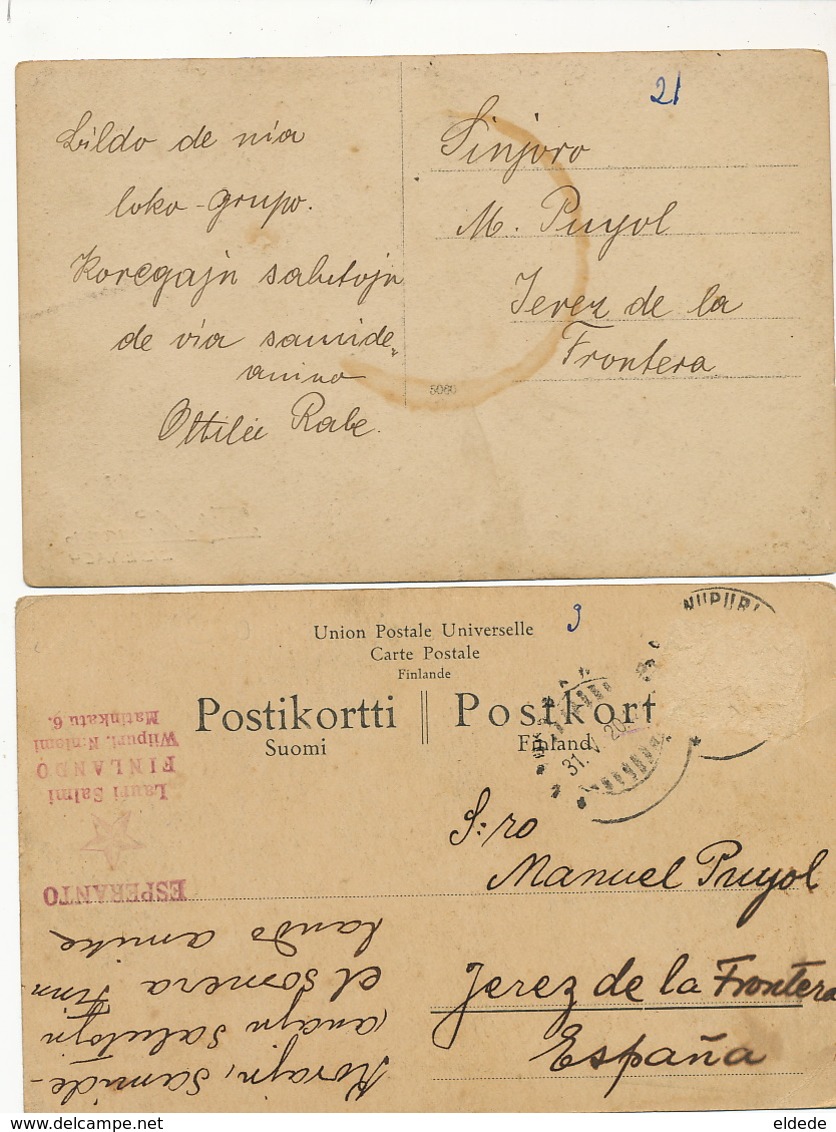 21
Bildo de nia
loko-grupo.
Koregajn salutojn
de via samide„
anino
Ottilie Rabe.
Sinjoro
M. Puyol
Jerez de la
Frontera
5060
Union Postale Universelle
Carte Postale
Finlande
Postikortti
Suomi
Postkort
Finland
9
31.V.20
ESPERANTO
Lauri Salmi
FINLANDO
Wiipuri. N:niemi
Matinkatu 6.
S:ro
Manuel Puyol
Jerez de la Frontera
España
Korajn, samide-
anajn salutojn
el somera Finn-
lando amike
eldede